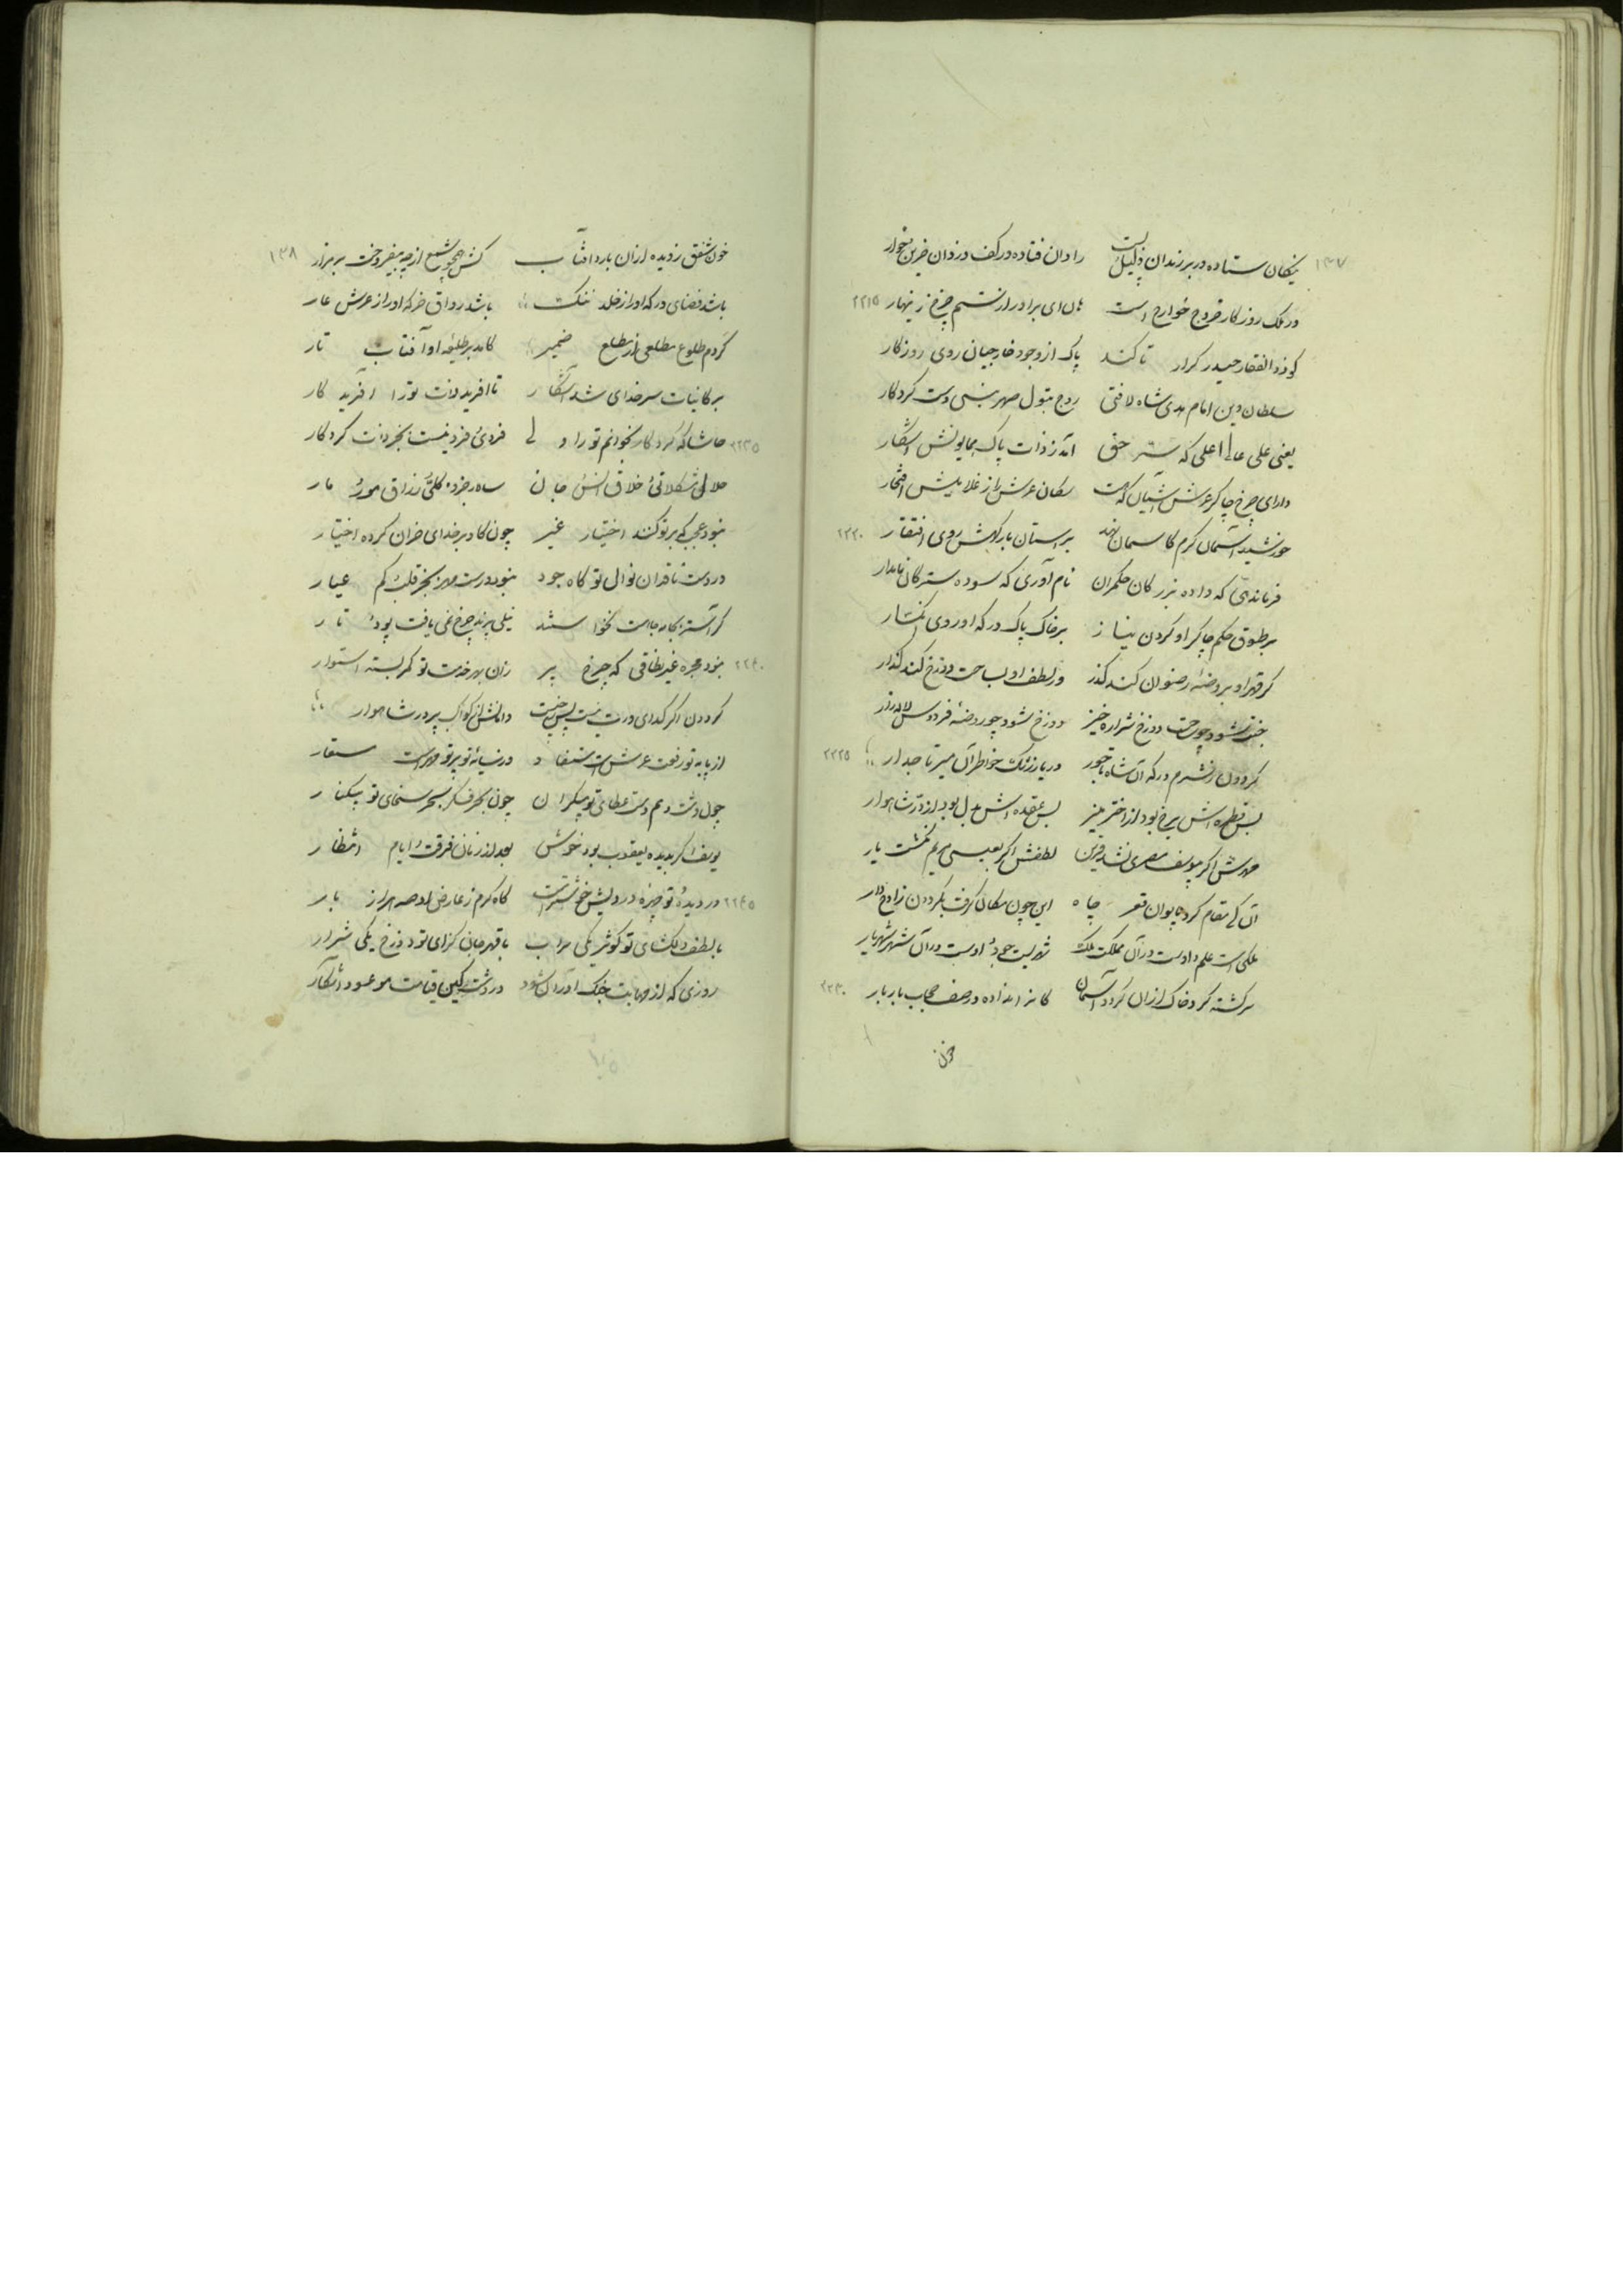 ۱۳۷
نیکان ستاده در بر زندان ذلیل
رادان فتاده در کف دزدان خوار
در ملک روزگار خروج خوارج است هان ای برادر از ستم چرخ زینهار ۲۲۱۵
کو ذوالفقار حیدر کرار تا کند پاک از وجود خارجیان روی روزگار
سلطان دین امام هدی شاه لافتی زوج بتول صهر نبی دست کردگار
یعنی علی عالی اعلی که سر حق آمد ز ذات پاک همایونش آشکار
دارای چرخ چاکر عرش آشیان که هست سکان عرش را ز غلامیش افتخار
خورشید آسمان کرم کاسمان نهد بر آستان بارگهش روی افتقار ۲۲۲۰
فرماندهی که داده بزرگان حکمران نام آوری که سوده سترگان نامدار
بر طوق حکم چاکر او گردن نیاز بر خاک پاک درگه او روی انکسار
گر قهر او بروضهٔ رضوان کند گذر ور لطف او بساحت دوزخ کند گذار
جنت شود چو ساحت دوزخ شراره خیز دوزخ شود چو روضهٔ فردوس لاله زار
گردون ز شرم درگه آن شاه تاجور دریا ز رشک خاطر آن میر تاجدار ۲۲۲۵
بس قطره اش برخ بود از اختر منیر بس عقده اش بدل بود از در شاهوار
مهرش اگر بیوسف مصری نشد قرین لطفش اگر بعیسی مریم نگشت یار
آن کی مقام کرد بایوان قعر چاه این چون مکان گرفت بگردون ز اوج دار
ملکی است علم و اوست در آن مملکت ملک شهریست جود و اوست در آن شهر شهریار
سرگشته گرد خاک از آن گردد آسمان کانرا نداده در صف حجاب بار بار ۲۲۳۰
خون
۱۳۸
خون شفق ز دیده از آن بارد آفتاب کش همچو شمع از چه نیفروخت بر مزار
باشد فضای درگه او را ز خلد ننگ باشد رواق خرگه او را ز عرش عار
کردم طلوع مطلعی از مطلع ضمیر کامد بر طلیعهٔ او آفتاب تار
بر کائنات سر خدای شد آشکار تا آفرید ذات تو را آفریدگار
۲۲۳۵ حاشا که کردگار بخوانم تو را ولی فردی و فرد نیست بجز ذات کردگار
حلال مشکلاتی و خلاق انس و جان رزاق مور و مار
نبود عجب که بر تو کنند اختیار غیر چون گاو بر خدای خران کرده اختیار
در دست ناقدان نوال تو گاه جود نبود درست مهر بجز قلب کم عیار
گر آستر بکار جلالت نخواستند نیلی پرند چرخ نمی یافت پود و تار
۲۲۴۰ نبود مجره غیر نطاقی که چرخ پیر زان بهر خدمت تو کمر بسته استوار
گردون اگر گدای درت نیست پس ز چیست دامانش از کواکب پر در شاهوار
از پایهٔ تو رفعت عرش است مستفاد ور سایهٔ تو پرتو مهر است مستعار
چون دشت وهم دست عطای تو بیکران چون بحر فکر بحر سخای تو بیکنار
یوسف اگر بدیدهٔ یعقوب بود خوش بعد از زمان فرقت و ایام انتظار
۲۲۴۵ در دیدهٔ تو چهرهٔ درویش خوشتر است گاه کرم ز عارض او صد هزار بار
با لطف دلگشای تو کوثر یکی سراب با قهر جان گزای تو دوزخ یکی شرار
روزی که از مهابت جنگ آوران شود در دشت کین قیامت موعود آشکار